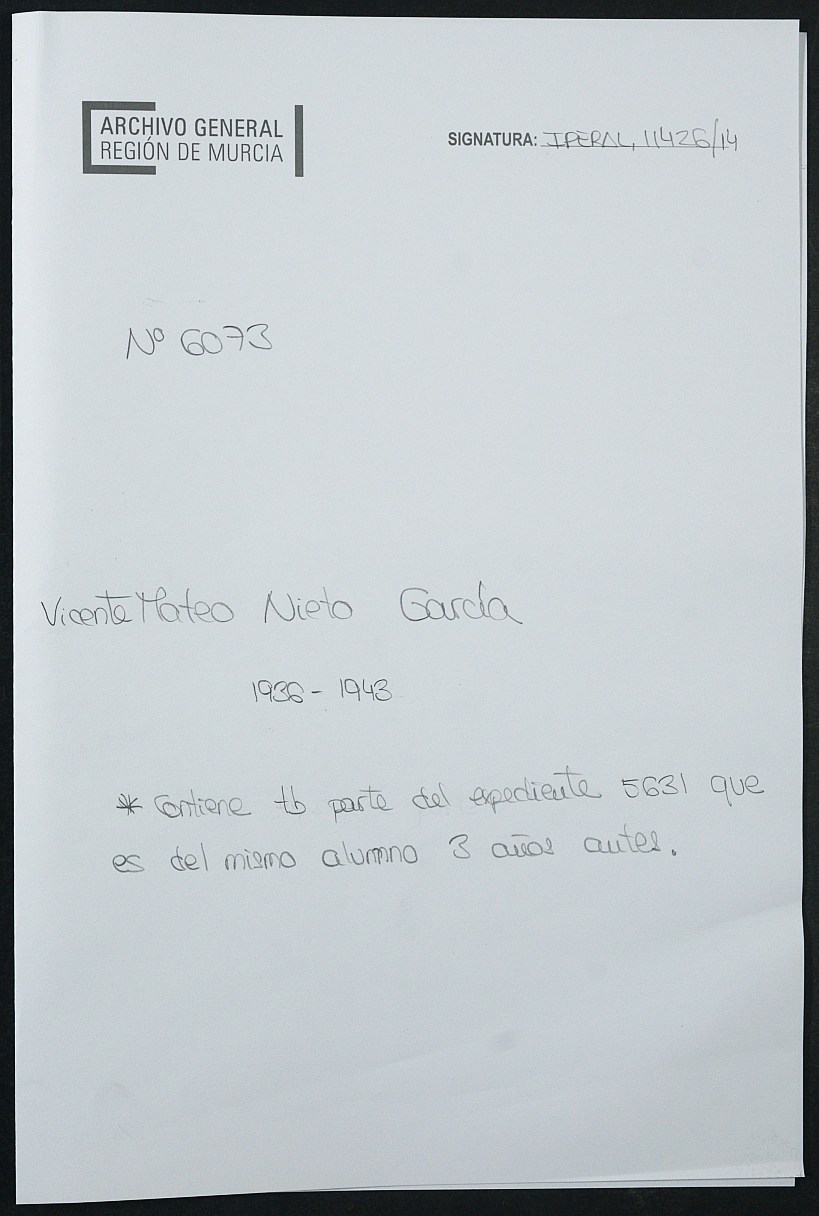 ARCHIVO GENERAL
REGIÓN DE MURCIA
SIGNATURA: IPERAL, 11426/14
Nº 6073
Vicente Mateo Nieto García
1936 - 1943
* Contiene tb parte del expediente 5631 que
es del mismo alumno 3 años antes.